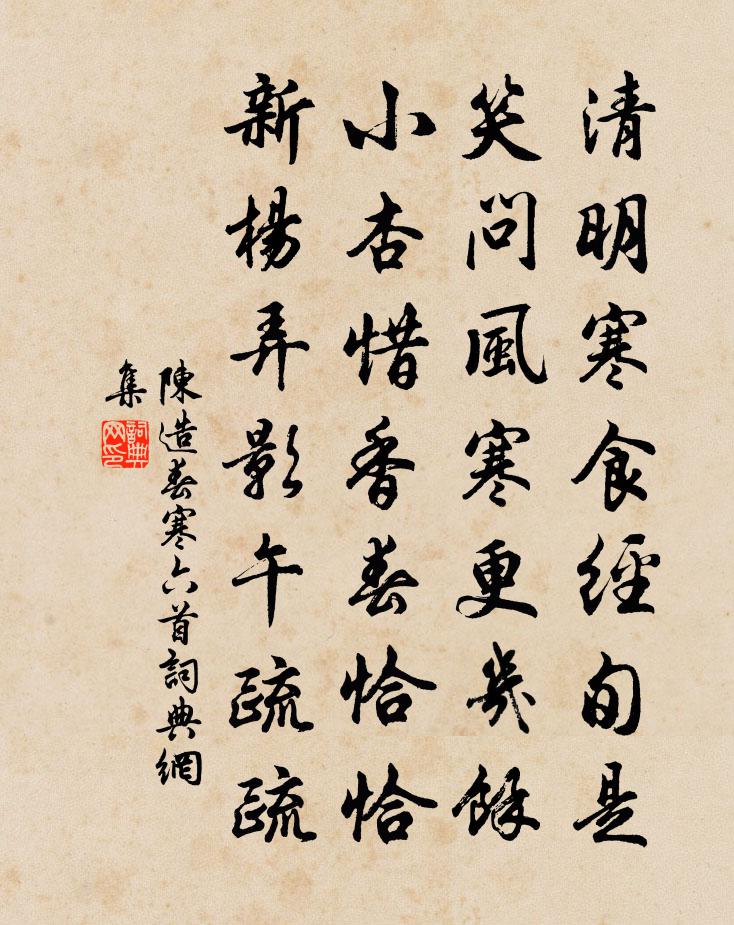 清明寒食經旬是
笑問風寒更幾餘
小杏惜香春恰恰
新楊弄影午疏疏
陳造春寒六首詞典網
集
詞典
网印